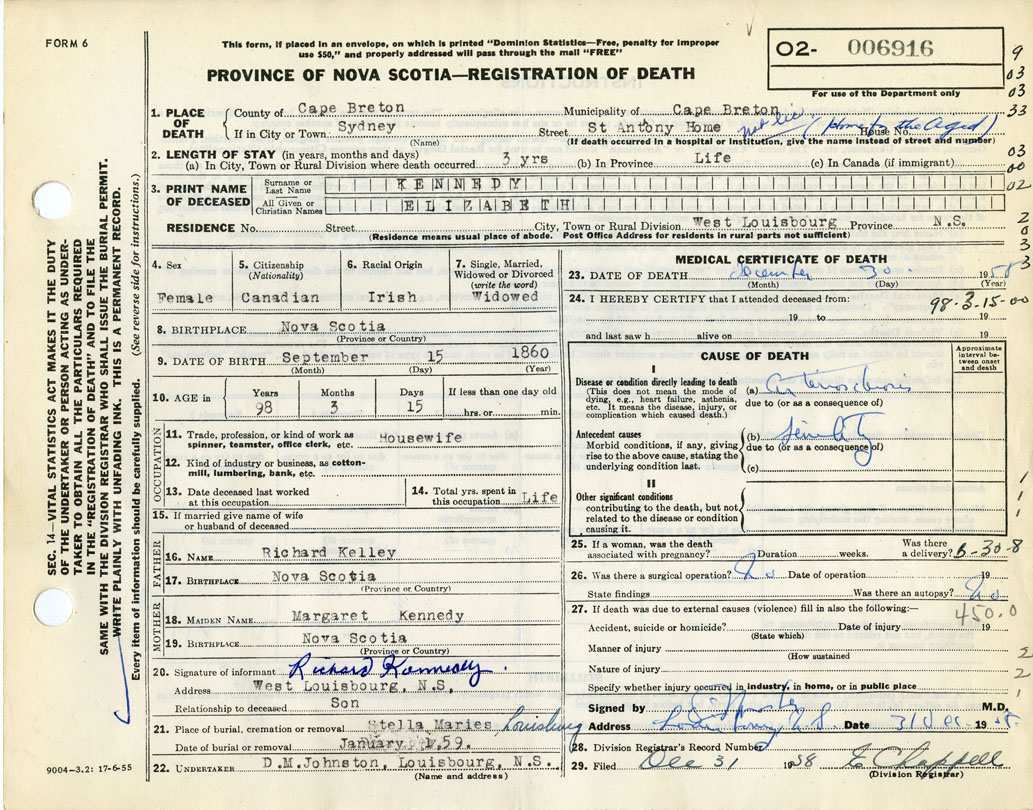 FORM 6
This form, if placed in an envelope, on which is printed "Dominion Statistics—Free, penalty for improper
use $50," and properly addressed will pass through the mail "FREE"
PROVINCE OF NOVA SCOTIA—REGISTRATION OF DEATH
O2- 006916
For use of the Department only
9
03
03
33
03
00
02
2
0
3
3
1. PLACE OF DEATH
County of Cape Breton Municipality of Cape Breton
If in City or Town Sydney Street St Antony Home House No. not lic (Home for the Aged)
(Name) (If death occurred in a hospital or institution, give the name instead of street and number)
2. LENGTH OF STAY (in years, months and days)
(a) In City, Town or Rural Division where death occurred 3 yrs (b) In Province Life (c) In Canada (if immigrant)
3. PRINT NAME OF DECEASED
Surname or Last Name KENNEDY
All Given or Christian Names ELIZABETH
RESIDENCE No. Street City, Town or Rural Division West Louisbourg Province N.S.
(Residence means usual place of abode. Post Office Address for residents in rural parts not sufficient)
4. Sex Female
5. Citizenship (Nationality) Canadian
6. Racial Origin Irish
7. Single, Married, Widowed or Divorced (write the word) Widowed
8. BIRTHPLACE Nova Scotia
(Province or Country)
9. DATE OF BIRTH September 15 1860
(Month) (Day) (Year)
10. AGE in Years Months Days If less than one day old
98 3 15 hrs. or min.
OCCUPATION
11. Trade, profession, or kind of work as spinner, teamster, office clerk, etc. Housewife
12. Kind of industry or business, as cotton-mill, lumbering, bank, etc.
13. Date deceased last worked at this occupation
14. Total yrs. spent in this occupation Life
15. If married give name of wife or husband of deceased
FATHER
16. NAME Richard Kelley
17. BIRTHPLACE Nova Scotia
(Province or Country)
MOTHER
18. MAIDEN NAME Margaret Kennedy
19. BIRTHPLACE Nova Scotia
(Province or Country)
20. Signature of informant Richard Kennedy.
Address West Louisbourg, N.S.
Relationship to deceased Son
21. Place of burial, cremation or removal Stella Maries, Louisburg
Date of burial or removal January 59.
22. UNDERTAKER D.M.Johnston, Louisbourg, N.S.
(Name and address)
MEDICAL CERTIFICATE OF DEATH
23. DATE OF DEATH December 30 1958
(Month) (Day) (Year)
24. I HEREBY CERTIFY that I attended deceased from:
98-3-15-00
19 to 19
and last saw h alive on 19
CAUSE OF DEATH
Approximate interval between onset and death
I
Disease or condition directly leading to death
(This does not mean the mode of dying, e.g., heart failure, asthenia, etc. It means the disease, injury, or complication which caused death.)
(a) Arteriosclerosis
due to (or as a consequence of)
Antecedent causes
Morbid conditions, if any, giving rise to the above cause, stating the underlying condition last.
(b) Senility
due to (or as a consequence of)
(c)
II
Other significant conditions
contributing to the death, but not related to the disease or condition causing it.
1
1
1
25. If a woman, was the death associated with pregnancy? Duration weeks. Was there a delivery? 6-30-8
26. Was there a surgical operation? No Date of operation 19
State findings Was there an autopsy? No
27. If death was due to external causes (violence) fill in also the following:—
450.0
Accident, suicide or homicide? Date of injury 19
(State which)
Manner of injury
(How sustained
Nature of injury
2
2
1
Specify whether injury occurred in industry, in home, or in public place
Signed by M.D.
Address N.S. Date 31 Dec 1958
28. Division Registrar's Record Number
29. Filed Dec 31 1958 E Chappell
(Division Registrar)
SEC. 14—VITAL STATISTICS ACT MAKES IT THE DUTY
OF THE UNDERTAKER OR PERSON ACTING AS UNDER-
TAKER TO OBTAIN ALL THE PARTICULARS REQUIRED
IN THE "REGISTRATION OF DEATH" AND TO FILE THE
SAME WITH THE DIVISION REGISTRAR WHO SHALL ISSUE THE BURIAL PERMIT.
WRITE PLAINLY WITH UNFADING INK. THIS IS A PERMANENT RECORD.
Every item of information should be carefully supplied. (See reverse side for instructions.)
9004—3.2: 17-6-55